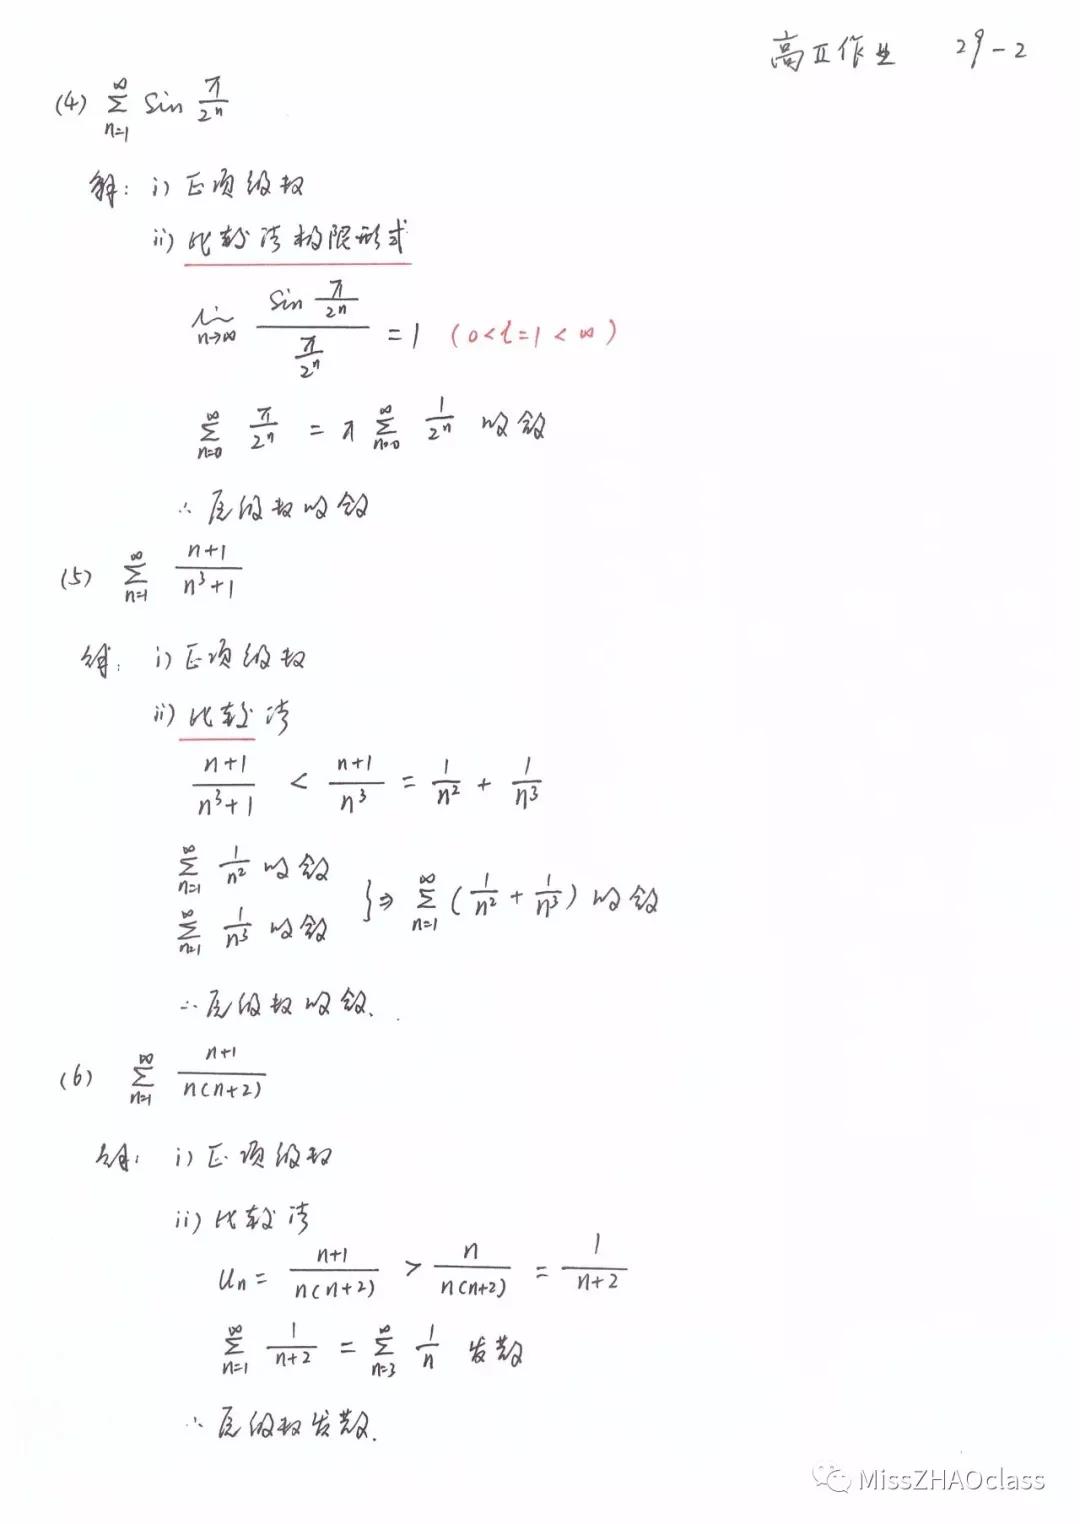 高Ⅱ作业 29-2
(4) ∑_{n=1}^{∞} sin π/2ⁿ
解: i) 正项级数
ii) 比较法极限形式
lim_{n→∞} (sin π/2ⁿ)/(π/2ⁿ) = 1 (0<l=1<∞)
∑_{n=0}^{∞} π/2ⁿ = π ∑_{n=0}^{∞} 1/2ⁿ 收敛
∴ 原级数收敛
(5) ∑_{n=1}^{∞} (n+1)/(n³+1)
解: i) 正项级数
ii) 比较法
(n+1)/(n³+1) < (n+1)/n³ = 1/n² + 1/n³
∑_{n=1}^{∞} 1/n² 收敛
∑_{n=1}^{∞} 1/n³ 收敛
} ⇒ ∑_{n=1}^{∞} (1/n² + 1/n³) 收敛
∴ 原级数收敛.
(6) ∑_{n=1}^{∞} (n+1)/(n(n+2))
解: i) 正项级数
ii) 比较法
uₙ = (n+1)/(n(n+2)) > n/(n(n+2)) = 1/(n+2)
∑_{n=1}^{∞} 1/(n+2) = ∑_{n=3}^{∞} 1/n 发散
∴ 原级数发散.
MissZHAOclass